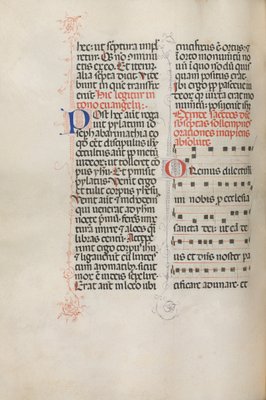 hec: ut scriptura impl
retur. Os non
ex eo. Et iterum alia
scriptura dicit. Vide
bunt in quem transfixe
runt. Hic legitur in
tono evangelii.
Post hec aut roga
vit pylatum io
seph ab arimathia eo
qd eet discipulus
occultus aut pp metum
iudeor: ut tolleret co
pus ihu. Et permisit
pylatus. Venit ergo
et tulit corpus ihu.
Venit aut et nichodem
qui venerat ad ihm
nocte primu: ferens mix
turam mirre et aloes qsi
libras centu. Acceper
ergo corpus ihu: et
ligaverunt eu linteis
cum aromatibz: sicut
mos e iudeis sepelire.
Erat aut in loco ubi
crucifixus e ortus: et
in orto monumentu no
vu in quo nondu qui
quam positus erat.
Ibi ergo pp parasceve
iudeor: qa iuxta erat
monumentu: posuerut ihm
Deinde sacerdos
incipiens
absolute.
Oremus dilectissi
mi nobis p ecclesia
sancta dei: ut ea de
us et dns noster pa
cificare adunare et